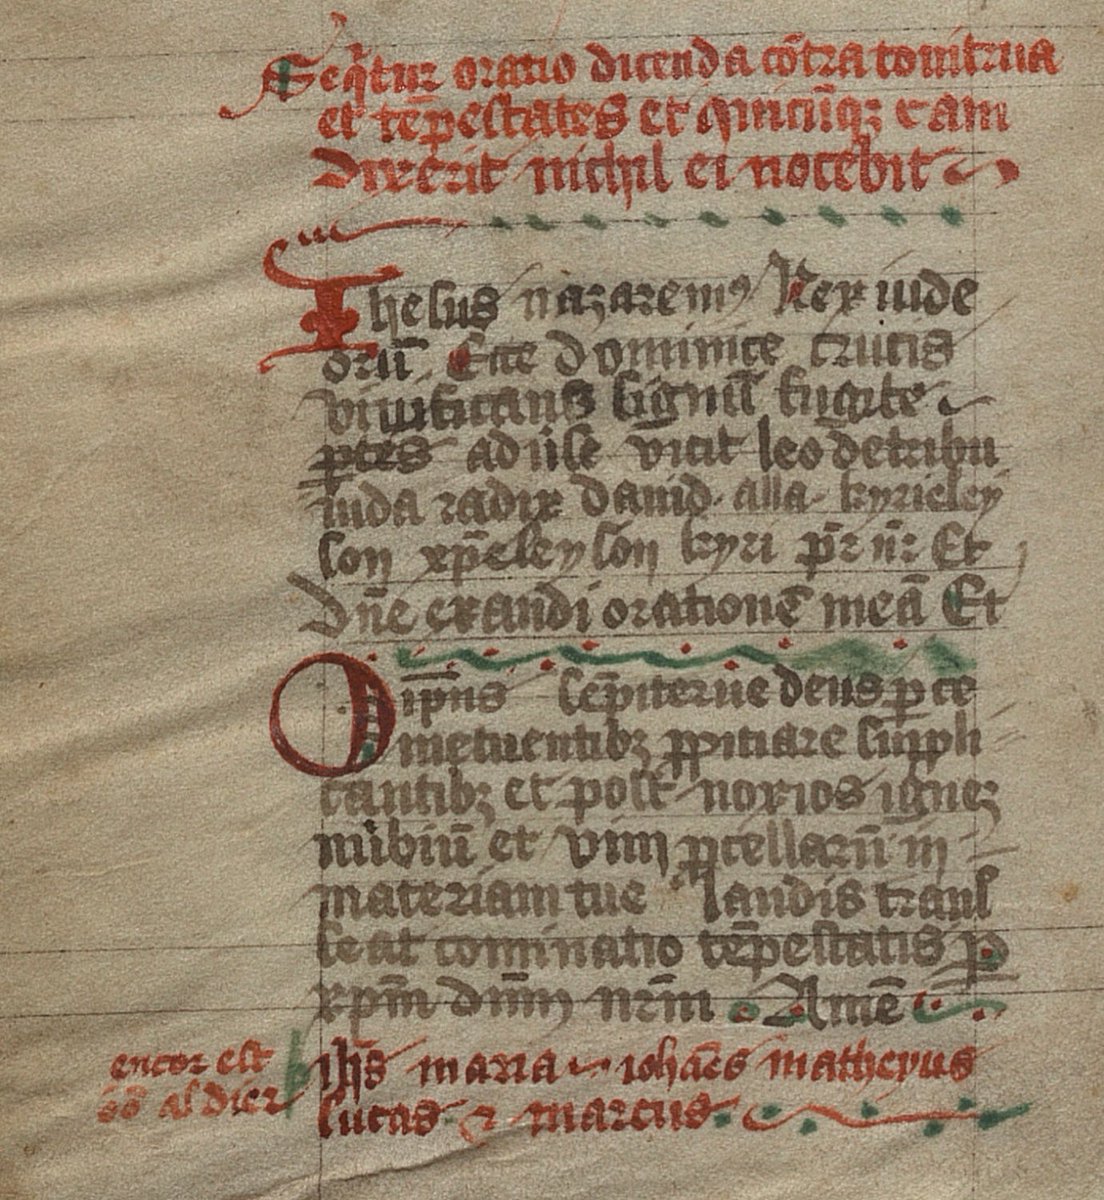 Seqͥtur oratio dicenda cōtra tonitrua
et tēpestates et quicūqꝫ eam
dixerit nichil ei nocebit
Ihesus nazarenꝰ Rex iude
orū Ecce dominice crucis
viuificans signū fugite
ꝑtes aduͥse vicit leo de tribu
iuda radix dauid alla kyrieley
son xp̄eleyson kyri pr̄ nr̄ Et
Dn̄e exaudi orationē meā Et
Oīpn̄s sēpiterne deus ꝑce
metuentibꝫ ꝓpitiare suppli
cantibꝫ et post noxios ignes
nubiū et vim ꝓcellarū in
materiam tue laudis trans
seat cominatio tēpestatis ꝑ
xp̄m dn̄m nrm̄ Amē
ihs̄ maria iohās matheyus
lucas ⁊ marcus
encor est
al dier